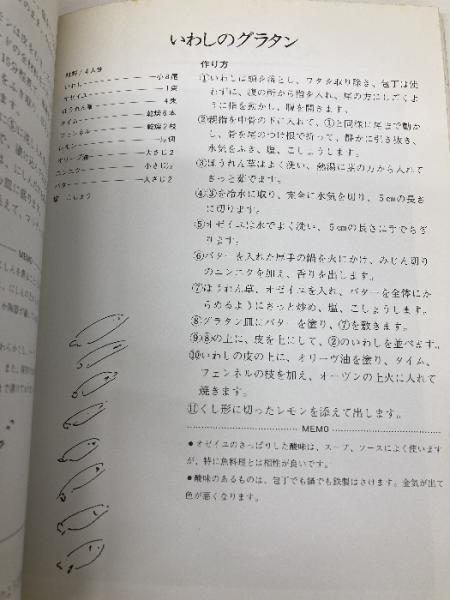 いわしのグラタン
材料/4人分
いわし 小8尾
オゼイユ 1束
ほうれん草 4束
タイム 乾燥6本
フェンネル 乾燥2枝
レモン ½個
オリーブ油 大さじ2
ニンニク 小さじ½
バター 大さじ2
塩 こしょう
作り方
①いわしは頭を落とし、ワタを取り除き、包丁は使
わずに、腹の所から指を入れ、尾の方にしごくよ
うに指を動かし、腹を開きます。
②親指を中骨の下に入れて、①と同様に尾まで動か
し、骨を尾のつけ根で折って、静かに引き抜き、
水気をふき、塩、こしょうします。
③ほうれん草はよく洗い、熱湯に茎の方から入れて
さっと茹でます。
④③を冷水に取り、完全に水気を切り、5cmの長さ
に切ります。
⑤オゼイユは水でよく洗い、5cmの長さに手でちぎ
ります。
⑥バターを入れた厚手の鍋を火にかけ、みじん切り
のニンニクを加え、香りを出します。
⑦ほうれん草、オゼイユを入れ、バターを全体にか
らめるようにさっと炒め、塩、こしょうします。
⑧グラタン皿にバターを塗り、⑦を敷きます。
⑨⑧の上に、皮を上にして、②のいわしを並べます。
⑩いわしの皮の上に、オリーヴ油を塗り、タイム、
フェンネルの枝を加え、オーヴンの上火に入れて
焼きます。
⑪くし形に切ったレモンを添えて出します。
MEMO
●オゼイユのさっぱりした酸味は、スープ、ソースによく使います
が、特に魚料理とは相性が良いです。
●酸味のあるものは、包丁でも鍋でも鉄製はさけます。金気が出て
色が悪くなります。
MEMO